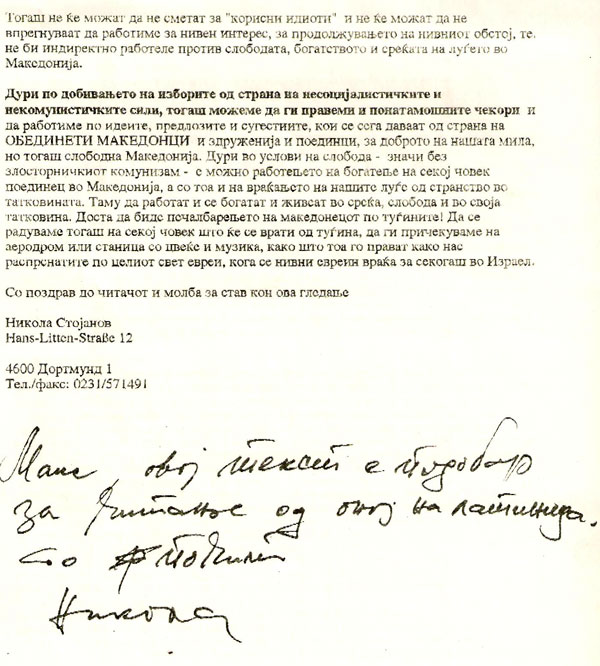 Тогаш не ќе можат да не сметат за "корисни идиоти" и не ќе можат да не
впрегнуваат да работиме за нивен интерес, за продолжувањето на нивниот обстој, те.
не би индиректно работеле против слободата, богатството и среќата на луѓето во
Македонија.

Дури по добивањето на изборите од страна на несоцијалистичките и
некомунистичките сили, тогаш можеме да ги правеми и понатамошните чекори и
да работиме по идеите, предлозите и сугестиите, кои се сега даваат од страна на
ОБЕДИНЕТИ МАКЕДОНЦИ и здруженија и поединци, за доброто на нашата мила,
но тогаш слободна Македонија. Дури во услови на слобода - значи без
злосторничкиот комунизам - е можно работењето на богатење на секој човек
поединец во Македонија, а со тоа и на враќањето на нашите луѓе од странство во
татковината. Таму да работат и се богатат и живеат во среќа, слобода и во своја
татковина. Доста да биде печалбарењето на македонецот по туѓините! Да се
радуваме тогаш на секој човек што ќе се врати од туѓина, да ги пречекуваме на
аеродром или станица со цвеќе и музика, како што тоа го прават како нас
распрснатите по целиот свет евреи, кога се нивни евреин враќа за секогаш во Израел.

Со поздрав до читачот и молба за став кон ова гледање

Никола Стојанов
Hans-Litten-Straße 12

4600 Дортмунд 1
Тел./факс: 0231/571491

овој текст е подобар
за читање од оној на латиница.
Со почит
Никола